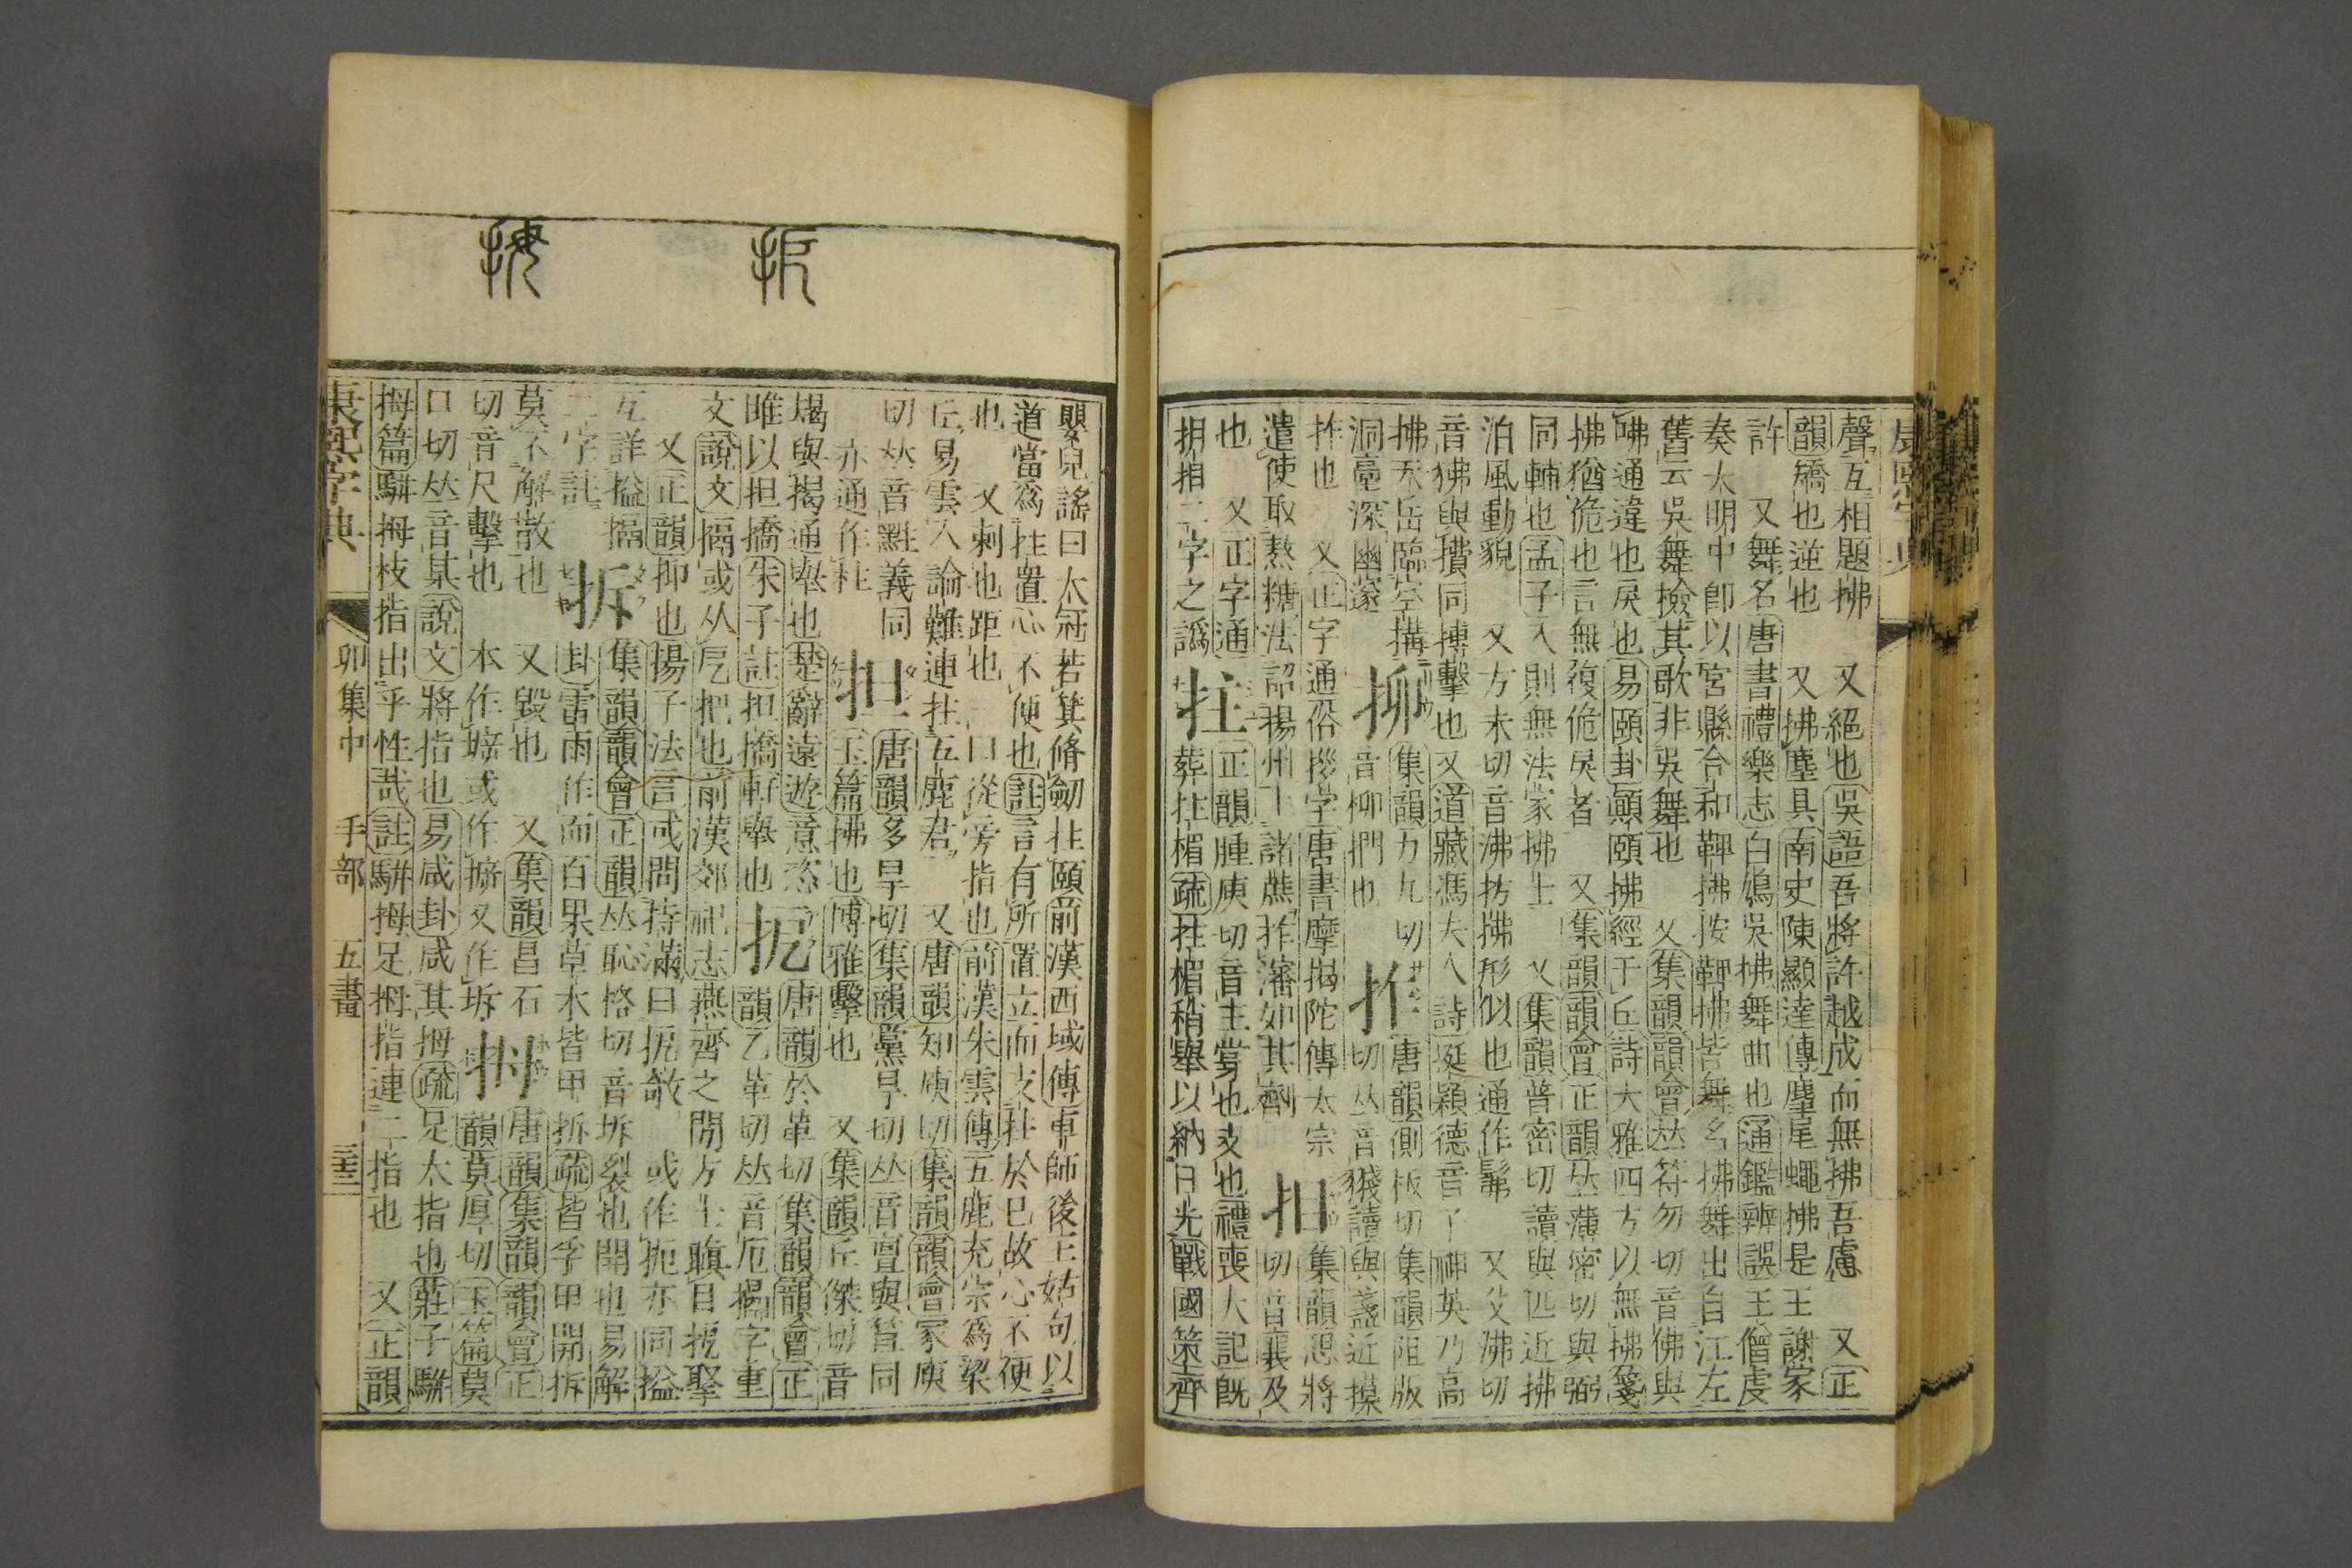 聲互相題拂 又絕也吳語吾將許越成而無拂吾慮 又正
韻矯也逆也 又拂塵具南史陳顯達傳麈尾蠅拂是王謝家
許 又舞名唐書禮樂志白鳩吳拂舞曲也通鑑辨誤王僧虔
奏大明中卽以宮縣合和鞞拂按鞞拂皆舞名拂舞出自江左
舊云吳舞檢其歌非吳舞也 又集韻韻會𠀤符勿切音佛與
咈通違也戾也易頤卦顚頤拂經于丘詩大雅四方以無拂箋
拂猶佹也言無復佹戾者 又集韻韻會正韻𠀤薄密切與弼
同輔也孟子入則無法家拂士 又集韻普密切讀與匹近拂
泊風動貌 又方未切音沸彷拂形似也通作髴 又父沸切
音狒與㩌同搏擊也又道藏馮夫人詩挺穎德音子神英乃高
拂天岳臨空搆 集韻力九切 唐韻側板切集韻阻版
洞臺深幽邃 音柳捫也 拃 切𠀤音 讀與盞近摸
拃也 又正字通俗拶字唐書摩揭陀傳太宗 集韻 將
遣使取熬糖法詔揚州上諸蔗拃瀋如其劑 切音襄及
也 又正字通 拄 正韻腫庾切音主掌也支也禮喪大記旣
二字之譌 葬拄楣疏拄楣稍舉以納日光戰國策齊
嬰兒謠曰大冠若箕脩劒拄頤前漢西域傳車師後王姑句以
道當爲拄置心不便也註言有所置立而支拄於己故心不便
也 又刺也距也一曰從旁指也前漢朱雲傳五鹿充宗爲梁
丘易雲入論難連拄五鹿君 又唐韻知庾切集韻韻會冢庾
切𠀤音黈義同 担 唐韻多旱切集韻黨旱切𠀤音亶與笪同
亦通作柱 玉篇拂也博雅擊也 又集韻丘傑切音
朅與揭通舉也楚辭遠遊意恣 扼 唐韻於革切集韻韻會正
睢以担撟朱子註担撟軒舉也 韻乙革切𠀤音厄搹字重
文說文搹或从戹把也前漢郊祀志燕齊之閒方士瞋目扼掔
又正韻抑也揚子法言或問持滿曰扼欹 或作扼亦同搤
互詳搤搹 拆 集韻韻會正韻𠀤恥格切音坼裂也開也易解
二字註 卦雷雨作而百果草木皆甲拆疏皆孚甲開拆
莫不解散也 又毀也 又集韻昌石 拇 唐韻集韻韻會正
切音尺擊也 本作 或作 又作坼 韻莫厚切玉篇莫
口切𠀤音某說文將指也易咸卦咸其拇疏足大指也莊子駢
拇篇駢拇枝指出乎性哉註駢拇足拇指連二指也 又正韻
康熙字典 卯集中 手部 五畫